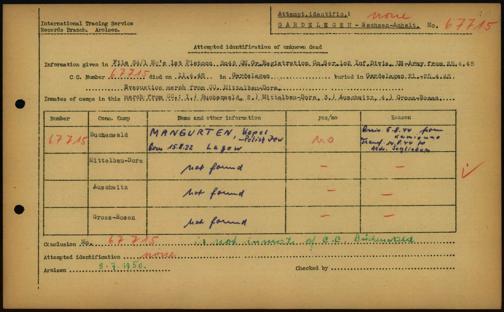 International Tracing Service
Records Branch, Arolsen.
Attempt.identific.: none
GARDELEGEN - Sachsen-Anhalt. No. 67715
Attempted identification of unknown dead
Information given in File 84/1 Ho's 1st Platoon, 3046 QM Gr. Registration Co. Hq. 102 Inf. Divis. US-Army from 25.4.45
C.C. Number 67715 died on 13.4.45 in Gardelegen buried in Gardelegen 21.-25.4.45
Evacuation march from CC. Mittelbau-Dora.
Inmates of camps in this march from CC.: 1./ Buchenwald 2./ Mittelbau-Dora, 3./ Auschwitz, 4./ Gross-Rosen.
Number Conc. Camp Name yes/no Reason
67715 Buchenwald MANGURTEN, Kopel - Polish Jew no
born 15.8.22 Lagow
Mittelbau-Dora not found —
Auschwitz not found —
Gross-Rosen not found —
Conclusion No. 67715 is not inmate of C.C. Buchenwald
Attempted identification none
Arolsen 8.7.1950. Checked by